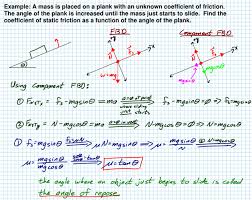 Example: A mass is placed on a plank with an unknown coefficient of friction.
The angle of the plank is increased until the mass just starts to slide. Find the
coefficient of static friction as a function of the angle of the plank.
FBD
Component FBD:
Using Component FBD:
① Fnetx = fs - mgsinθ = ma fs - mgsinθ = 0 ⇒ fs = mgsinθ
② Fnety = N - mgcosθ = ma N - mgcosθ = 0 ⇒ N = mgcosθ
① fs = mgsinθ ⇒ μN = mgsinθ ⇒ μ = mgsinθ / N
μ = mgsinθ / mgcosθ μ = tanθ
the angle where an object just begins to slide is called
the angle of repose